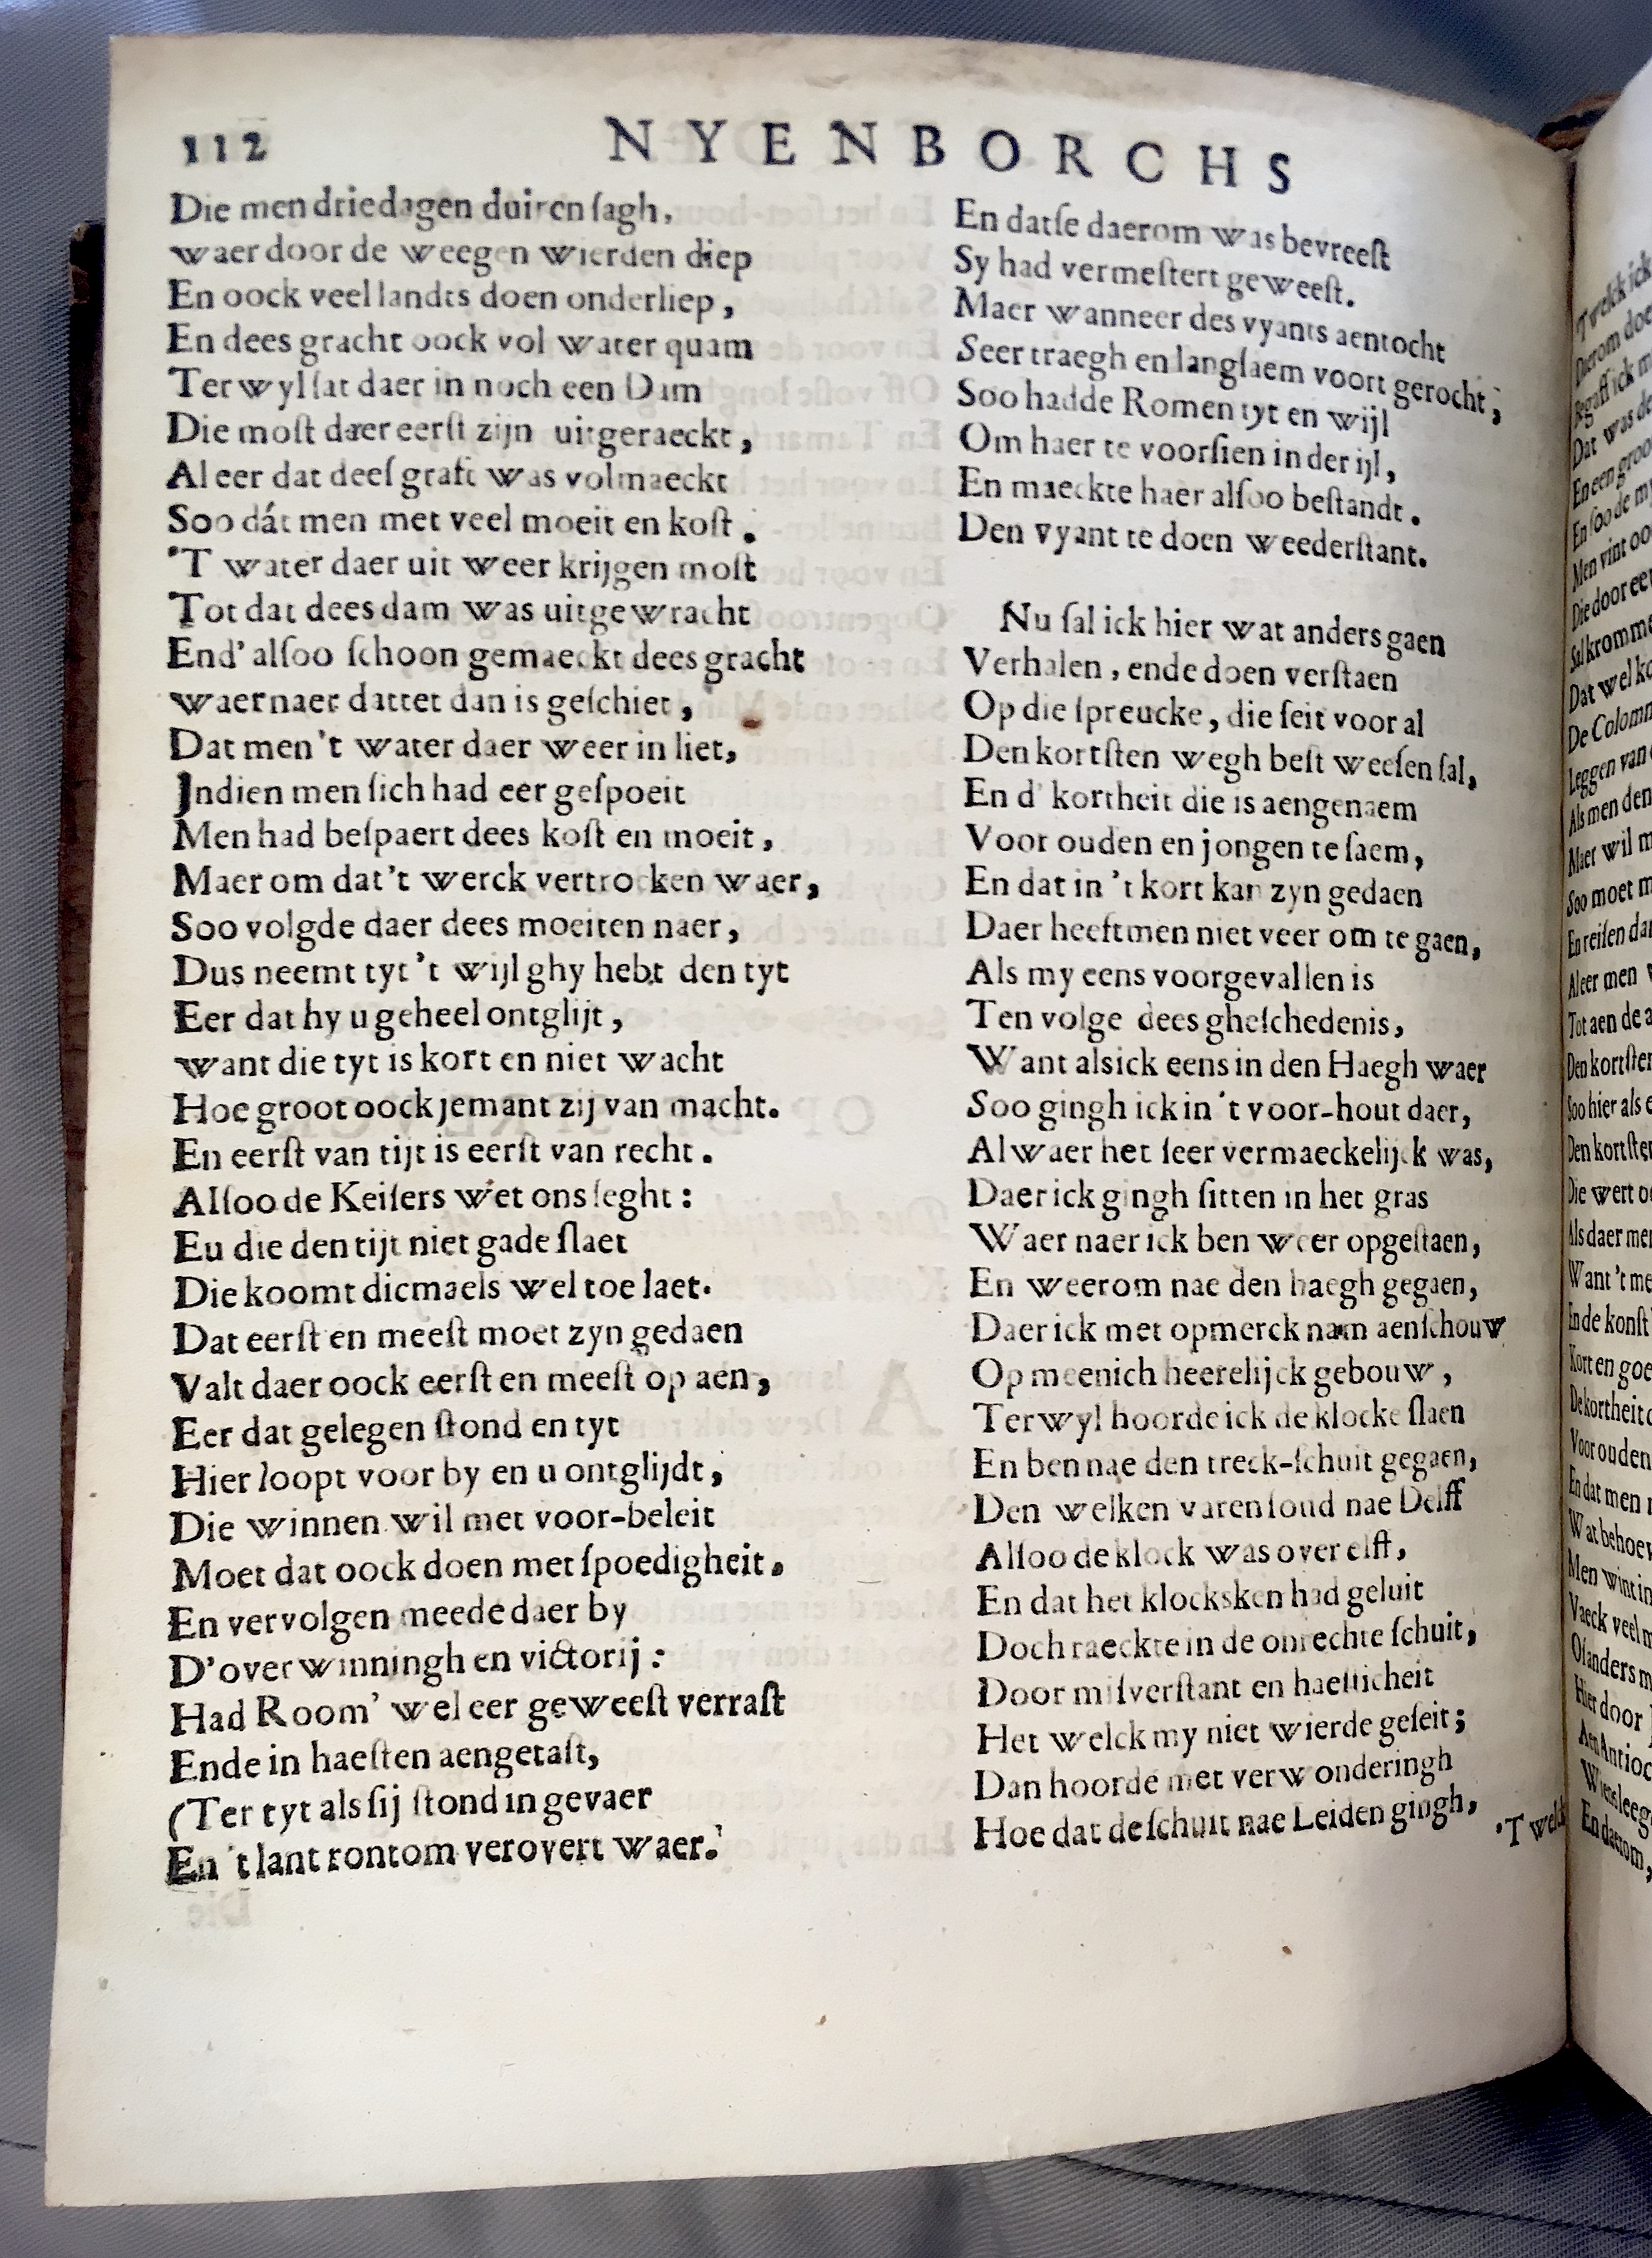 112
NYENBORCHS
Die men driedagen duiren ſagh,
waer door de weegen wierden diep
En oock veel landts doen onderliep,
En dees gracht oock vol water quam
Terwyl ſat daer in noch een Dam
Die moſt daer eerſt zijn uitgeraeckt,
Aleer dat deeſ graft was volmaeckt
Soo dát men met veel moeit en koſt.
'T water daer uit weer krijgen moſt
Tot dat dees dam was uitgewracht
End' alſoo ſchoon gemaeckt dees gracht
waernaer dattet dan is geſchiet,
Dat men 't water daer weer in liet,
Jndien men ſich had eer geſpoeit
Men had beſpaert dees koſt en moeit,
Maer om dat 't werck vertrocken waer,
Soo volgde daer dees moeiten naer,
Dus neemt tyt 't wijl ghy hebt den tyt
Eer dat hy u geheel ontglijt,
want die tyt is kort en niet wacht
Hoe groot oock jemant zij van macht.
En eerſt van tijt is eerſt van recht.
Alſoo de Keiſers wet ons ſeght:
Eu die den tijt niet gade ſlaet
Die koomt dicmaels wel toe laet.
Dat eerſt en meeſt moet zyn gedaen
Valt daer oock eerſt en meeſt op aen,
Eer dat gelegen ſtond en tyt
Hier loopt voor by en u ontglijdt,
Die winnen wil met voor-beleit
Moet dat oock doen met ſpoedigheit.
En vervolgen meede daer by
D'overwinningh en victorij:
Had Room' wel eer geweeſt verraſt
Ende in haeſten aengetaſt,
(Ter tyt als ſij ſtond in gevaer
En 't lant rontom verovert waer.)
En datſe daerom was bevreeſt
Sy had vermeſtert geweeſt.
Maer wanneer des vyants aentocht
Seer traegh en langſaem voort gerocht;
Soo hadde Romen tyt en wijl
Om haer te voorſien in der ijl,
En maeckte haer alſoo beſtandt.
Den vyant te doen weederſtant.
Nu ſal ick hier wat anders gaen
Verhalen, ende doen verſtaen
Op die ſpreucke, die ſeit voor al
Den kortſten wegh beſt weeſen ſal,
En d' kortheit die is aengenaem
Voor ouden en jongen te ſaem,
En dat in 't kort kan zyn gedaen
Daer heeft men niet veer om te gaen,
Als my eens voorgevallen is
Ten volge dees gheſchedenis,
Want als ick eens in den Haegh waer
Soo gingh ick in 't voor-hout daer,
Alwaer het ſeer vermaeckelijck was,
Daer ick gingh ſitten in het gras
Waer naer ick ben weer opgeſtaen,
En weerom nae den haegh gegaen,
Daer ick met opmerck nam aenſchouw
Op meenich heerelijck gebouw,
Terwyl hoorde ick de klocke ſlaen
En ben nae den treck-ſchuit gegaen,
Den welken varen ſoud nae Delff
Alſoo de klock was over elff,
En dat het klocksken had geluit
Doch raeckte in de onrechte ſchuit,
Door miſverſtant en haeſticheit
Het welck my niet wierde geſeit;
Dan hoorde met verwonderingh
Hoe dat de ſchuit nae Leiden gingh,
'T welck